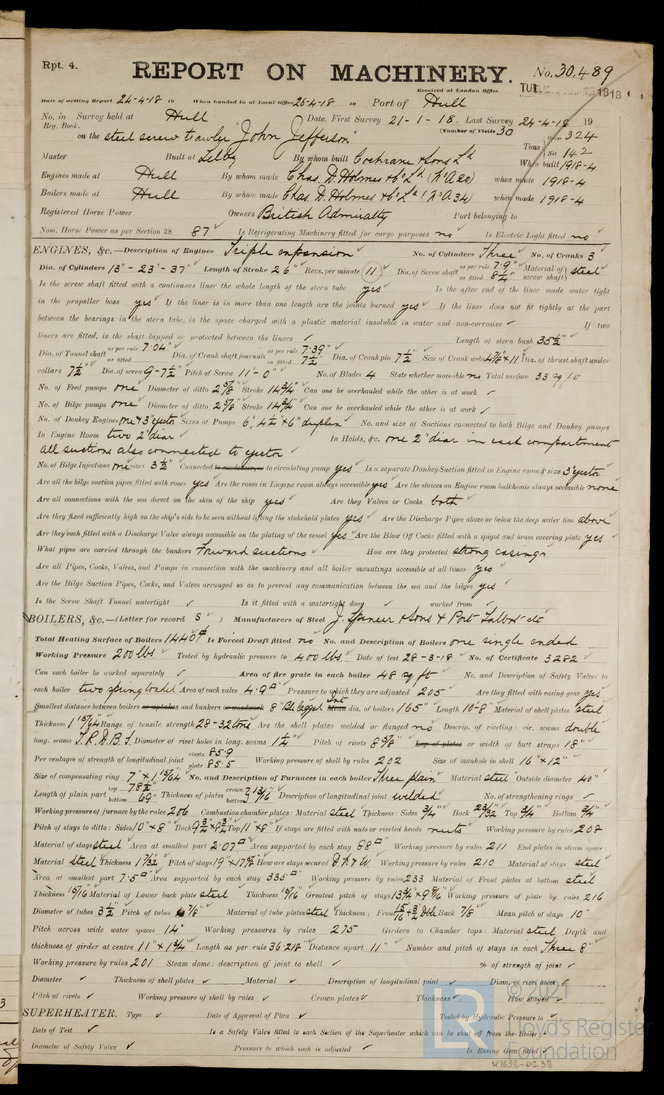 Rpt. 4.
REPORT ON MACHINERY.
No. 30.489
Received at London Office TUE. 1918
Date of writing Report 24-4-18 When handed in at Local Office 25-4-18 Port of Hull
No. in Survey held at Hull Date, First Survey 21-1-18 Last Survey 24-4-18 19
Reg. Book. (Number of Visits 30
on the steel screw trawler "John Jefferson" Tons 324 142
Master Built at Selby By whom built Cochrane & Sons Ld When built 1918-4
Engines made at Hull By whom made Chas. D. Holmes & Co Ld when made 1918-4
Boilers made at Hull By whom made Chas. D. Holmes & Co Ld when made 1918-4
Registered Horse Power Owners British Admiralty Port belonging to
Nom. Horse Power as per Section 28 87 Is Refrigerating Machinery fitted for cargo purposes no Is Electric Light fitted no
ENGINES, &c.—Description of Engines Triple expansion No. of Cylinders Three No. of Cranks 3
Dia. of Cylinders 13"-23"-37" Length of Stroke 26" Revs. per minute 111 Dia. of Screw shaft as per rule 7.9" Material of screw shaft steel
Is the screw shaft fitted with a continuous liner the whole length of the stern tube yes Is the after end of the liner made water tight
in the propeller boss yes If the liner is in more than one length are the joints burned yes If the liner does not fit tightly at the part
between the bearings in the stern tube, is the space charged with a plastic material insoluble in water and non-corrosive If two
liners are fitted, is the shaft lapped or protected between the liners Length of stern bush 35½"
Dia. of Tunnel shaft as per rule 7.04" as fitted Dia. of Crank shaft journals as per rule 7.39" as fitted 7½" Dia. of Crank pin 7½" Size of Crank webs Dia. of thrust shaft under
collars 7½" Dia. of screw 9-7½" Pitch of Screw 11'-0" No. of Blades 4 State whether moveable no Total surface 33 sq ft
No. of Feed pumps one Diameter of ditto 2⅝" Stroke 14¾" Can one be overhauled while the other is at work
No. of Bilge pumps one Diameter of ditto 2⅝" Stroke 14¾" Can one be overhauled while the other is at work
No. of Donkey Engines one & 3" ejector Sizes of Pumps 6", 4½" x 6" duplex No. and size of Suctions connected to both Bilge and Donkey pumps
In Engine Room two 2" dia In Holds, &c. one 2" dia in each compartment
all suctions also connected to ejector
No. of Bilge Injections one sizes 3½" Connected to circulating pump yes Is a separate Donkey Suction fitted in Engine room & size 3" ejector
Are all the bilge suction pipes fitted with roses yes Are the roses in Engine room always accessible yes Are the sluices on Engine room bulkheads always accessible none
Are all connections with the sea direct on the skin of the ship yes Are they Valves or Cocks both
Are they fixed sufficiently high on the ship's side to be seen without lifting the stokehold plates yes Are the Discharge Pipes above or below the deep water line above
Are they each fitted with a Discharge Valve always accessible on the plating of the vessel yes Are the Blow Off Cocks fitted with a spigot and brass covering plate yes
What pipes are carried through the bunkers Forward suctions How are they protected strong casings
Are all Pipes, Cocks, Valves, and Pumps in connection with the machinery and all boiler mountings accessible at all times yes
Are the Bilge Suction Pipes, Cocks, and Valves arranged so as to prevent any communication between the sea and the bilges yes
Is the Screw Shaft Tunnel watertight Is it fitted with a watertight door worked from
BOILERS, &c.—(Letter for record S) Manufacturers of Steel J. Spencer & Sons & Port Talbot etc
Total Heating Surface of Boilers 1440 Is Forced Draft fitted no No. and Description of Boilers one single ended
Working Pressure 200 lbs Tested by hydraulic pressure to 400 lbs Date of test 28-3-18 No. of Certificate 3282
Can each boiler be worked separately Area of fire grate in each boiler 48 sq ft No. and Description of Safety Valves to
each boiler two spring loaded Area of each valve 4.9 Pressure to which they are adjusted 205 Are they fitted with easing gear yes
Smallest distance between boilers or uptakes and bunkers or woodwork 8" Int dia. of boilers 165" Length 10-8 Material of shell plates steel
Thickness 1 15/64 Range of tensile strength 28-32 tons Are the shell plates welded or flanged no Descrip. of riveting: cir. seams double
long. seams T.R.D.B.S. Diameter of rivet holes in long. seams 1¼" Pitch of rivets 8⅝" Lap of plates or width of butt straps 18"
Per centages of strength of longitudinal joint rivets 85.9 plate 85.5 Working pressure of shell by rules 202 Size of manhole in shell 16" x 12"
Size of compensating ring 7" x 1 15/64" No. and Description of Furnaces in each boiler Three plain Material steel Outside diameter 40"
Length of plain part top 78½" bottom 69" Thickness of plates crown bottom 13/16" Description of longitudinal joint welded No. of strengthening rings
Working pressure of furnace by the rules 206 Combustion chamber plates: Material steel Thickness: Sides ¾" Back 23/32" Top ¾" Bottom ¾"
Pitch of stays to ditto: Sides 10" x 8" Back Top 11" x 8" If stays are fitted with nuts or riveted heads nuts Working pressure by rules 208
Material of stays steel Area at smallest part 2.07 Area supported by each stay 88 Working pressure by rules 211 End plates in steam space:
Material steel Thickness 1 7/32 Pitch of stays How are stays secured Working pressure by rules 210 Material of stays steel
Area at smallest part 7.5 Area supported by each stay 335 Working pressure by rules 233 Material of Front plates at bottom steel
Thickness 15/16" Material of Lower back plate steel Thickness 15/16" Greatest pitch of stays Working pressure of plate by rules 216
Diameter of tubes 3½ Pitch of tubes Material of tube plates steel Thickness: Front Back 7/8" Mean pitch of stays 10"
Pitch across wide water spaces 14" Working pressures by rules 275 Girders to Chamber tops: Material steel Depth and
thickness of girder at centre 11" x 1¾" Length as per rule Distance apart 11" Number and pitch of stays in each Three 8"
Working pressure by rules 201 Steam dome: description of joint to shell % of strength of joint
Diameter Thickness of shell plates Material Description of longitudinal joint Diam. of rivet holes
Pitch of rivets Working pressure of shell by rules Crown plates Thickness How stayed
SUPERHEATER. Type Date of Approval of Plan Tested by Hydraulic Pressure to
Date of Test Is a Safety Valve fitted to each Section of the Superheater which can be shut off from the Boiler
Diameter of Safety Valve Pressure to which each is adjusted Is Easing Gear fitted
© 2021
Lloyd's Register
Foundation
W1638-0238